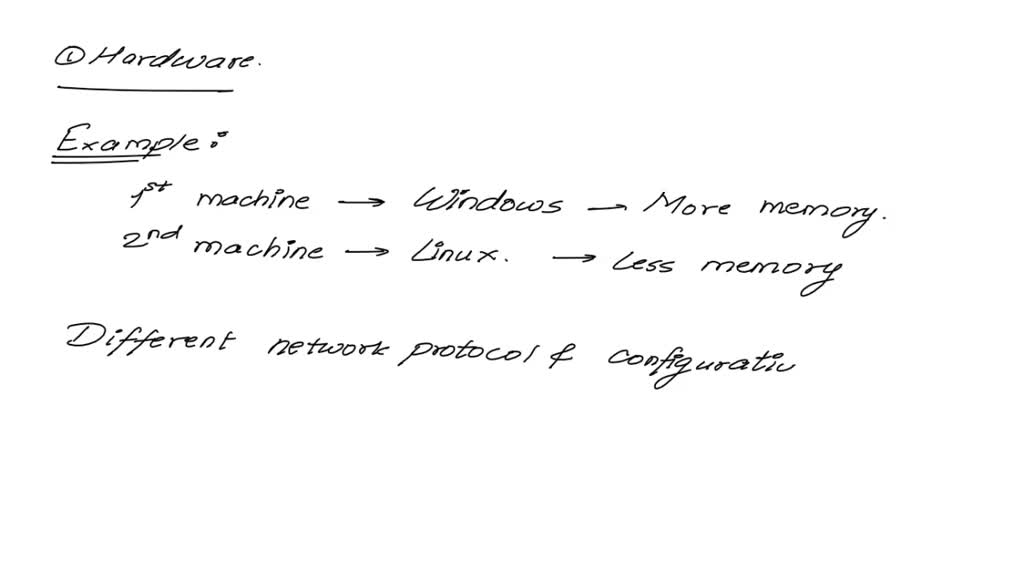 ① Hardware.
Example:
1st machine → Windows → More memory.
2nd machine → Linux. → Less memory
Different network protocol & configuratio